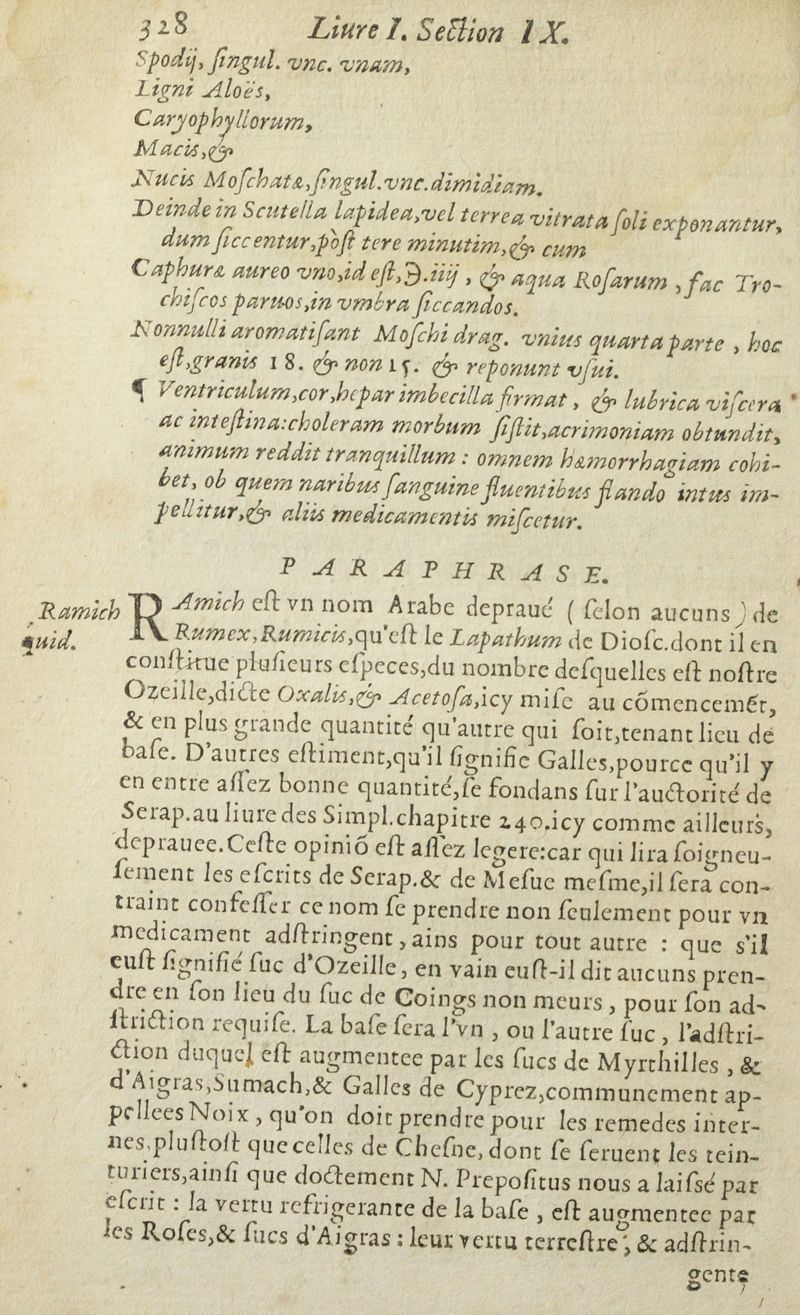 328 Liure I. Section IX.
Spodij, singul. vnc. vnam,
Ligni Aloës,
Caryophyllorum,
Macis,&
Nucis Moschatæ,singul.vnc.dimidiam.
Deinde in Scutella lapidea,vel terrea vitrata soli exponantur,
dum siccentur,post tere minutim,& cum
Caphuræ aureo vno,id est,℈.iiij, & aqua Rosarum, fac Tro-
chiscos paruos,in vmbra siccandos.
Nonnulli aromatisant Moschi drag. vnius quarta parte, hoc
est,granis 18. & non 15. & reponunt vsui.
¶ Ventriculum,cor,hepar imbecilla firmat, & lubrica viscera
ac intestina:choleram morbum sistit,acrimoniam obtundit,
animum reddit tranquillum : omnem hæmorrhagiam cohi-
bet, ob quem naribus sanguine fluentibus flando intus im-
pellitur,& aliis medicamentis miscetur.
PARAPHRASE.
Ramich quid.
RAmich est vn nom Arabe depraué ( selon aucuns) de
Rumex,Rumicis,qu'est le Lapathum de Diosc.dont il en
constitue plusieurs especes,du nombre desquelles est nostre
Ozeille,dicte Oxalis,& Acetosa,icy mise au cõmencemẽt,
& en plus grande quantité qu'autre qui soit,tenant lieu de
base. D'autres estiment,qu'il signifie Galles,pource qu'il y
en entre assez bonne quantité,se fondans sur l'auctorité de
Serap.au liure des Simpl.chapitre 240.icy comme ailleurs,
deprauee.Ceste opiniõ est assez legere:car qui lira soigneu-
sement les escrits de Serap.& de Mesue mesme,il sera con-
traint confesser ce nom se prendre non seulement pour vn
medicament adstringent, ains pour tout autre : que s'il
eust signifié suc d'Ozeille, en vain eust-il dit aucuns pren-
dre en son lieu du suc de Coings non meurs, pour son ad-
striction requise. La base sera l'vn, ou l'autre suc, l'adstri-
ction duquel est augmentee par les sucs de Myrthilles, &
d'Aigras,Sumach,& Galles de Cyprez,communement ap-
pellees Noix, qu'on doit prendre pour les remedes inter-
nes,plustost que celles de Chesne, dont se seruent les tein-
turiers,ainsi que doctement N. Prepositus nous a laissé par
escrit : la vertu refrigerante de la base, est augmentee par
les Roses,& sucs d'Aigras : leur vertu terrestre, & adstrin-
gente